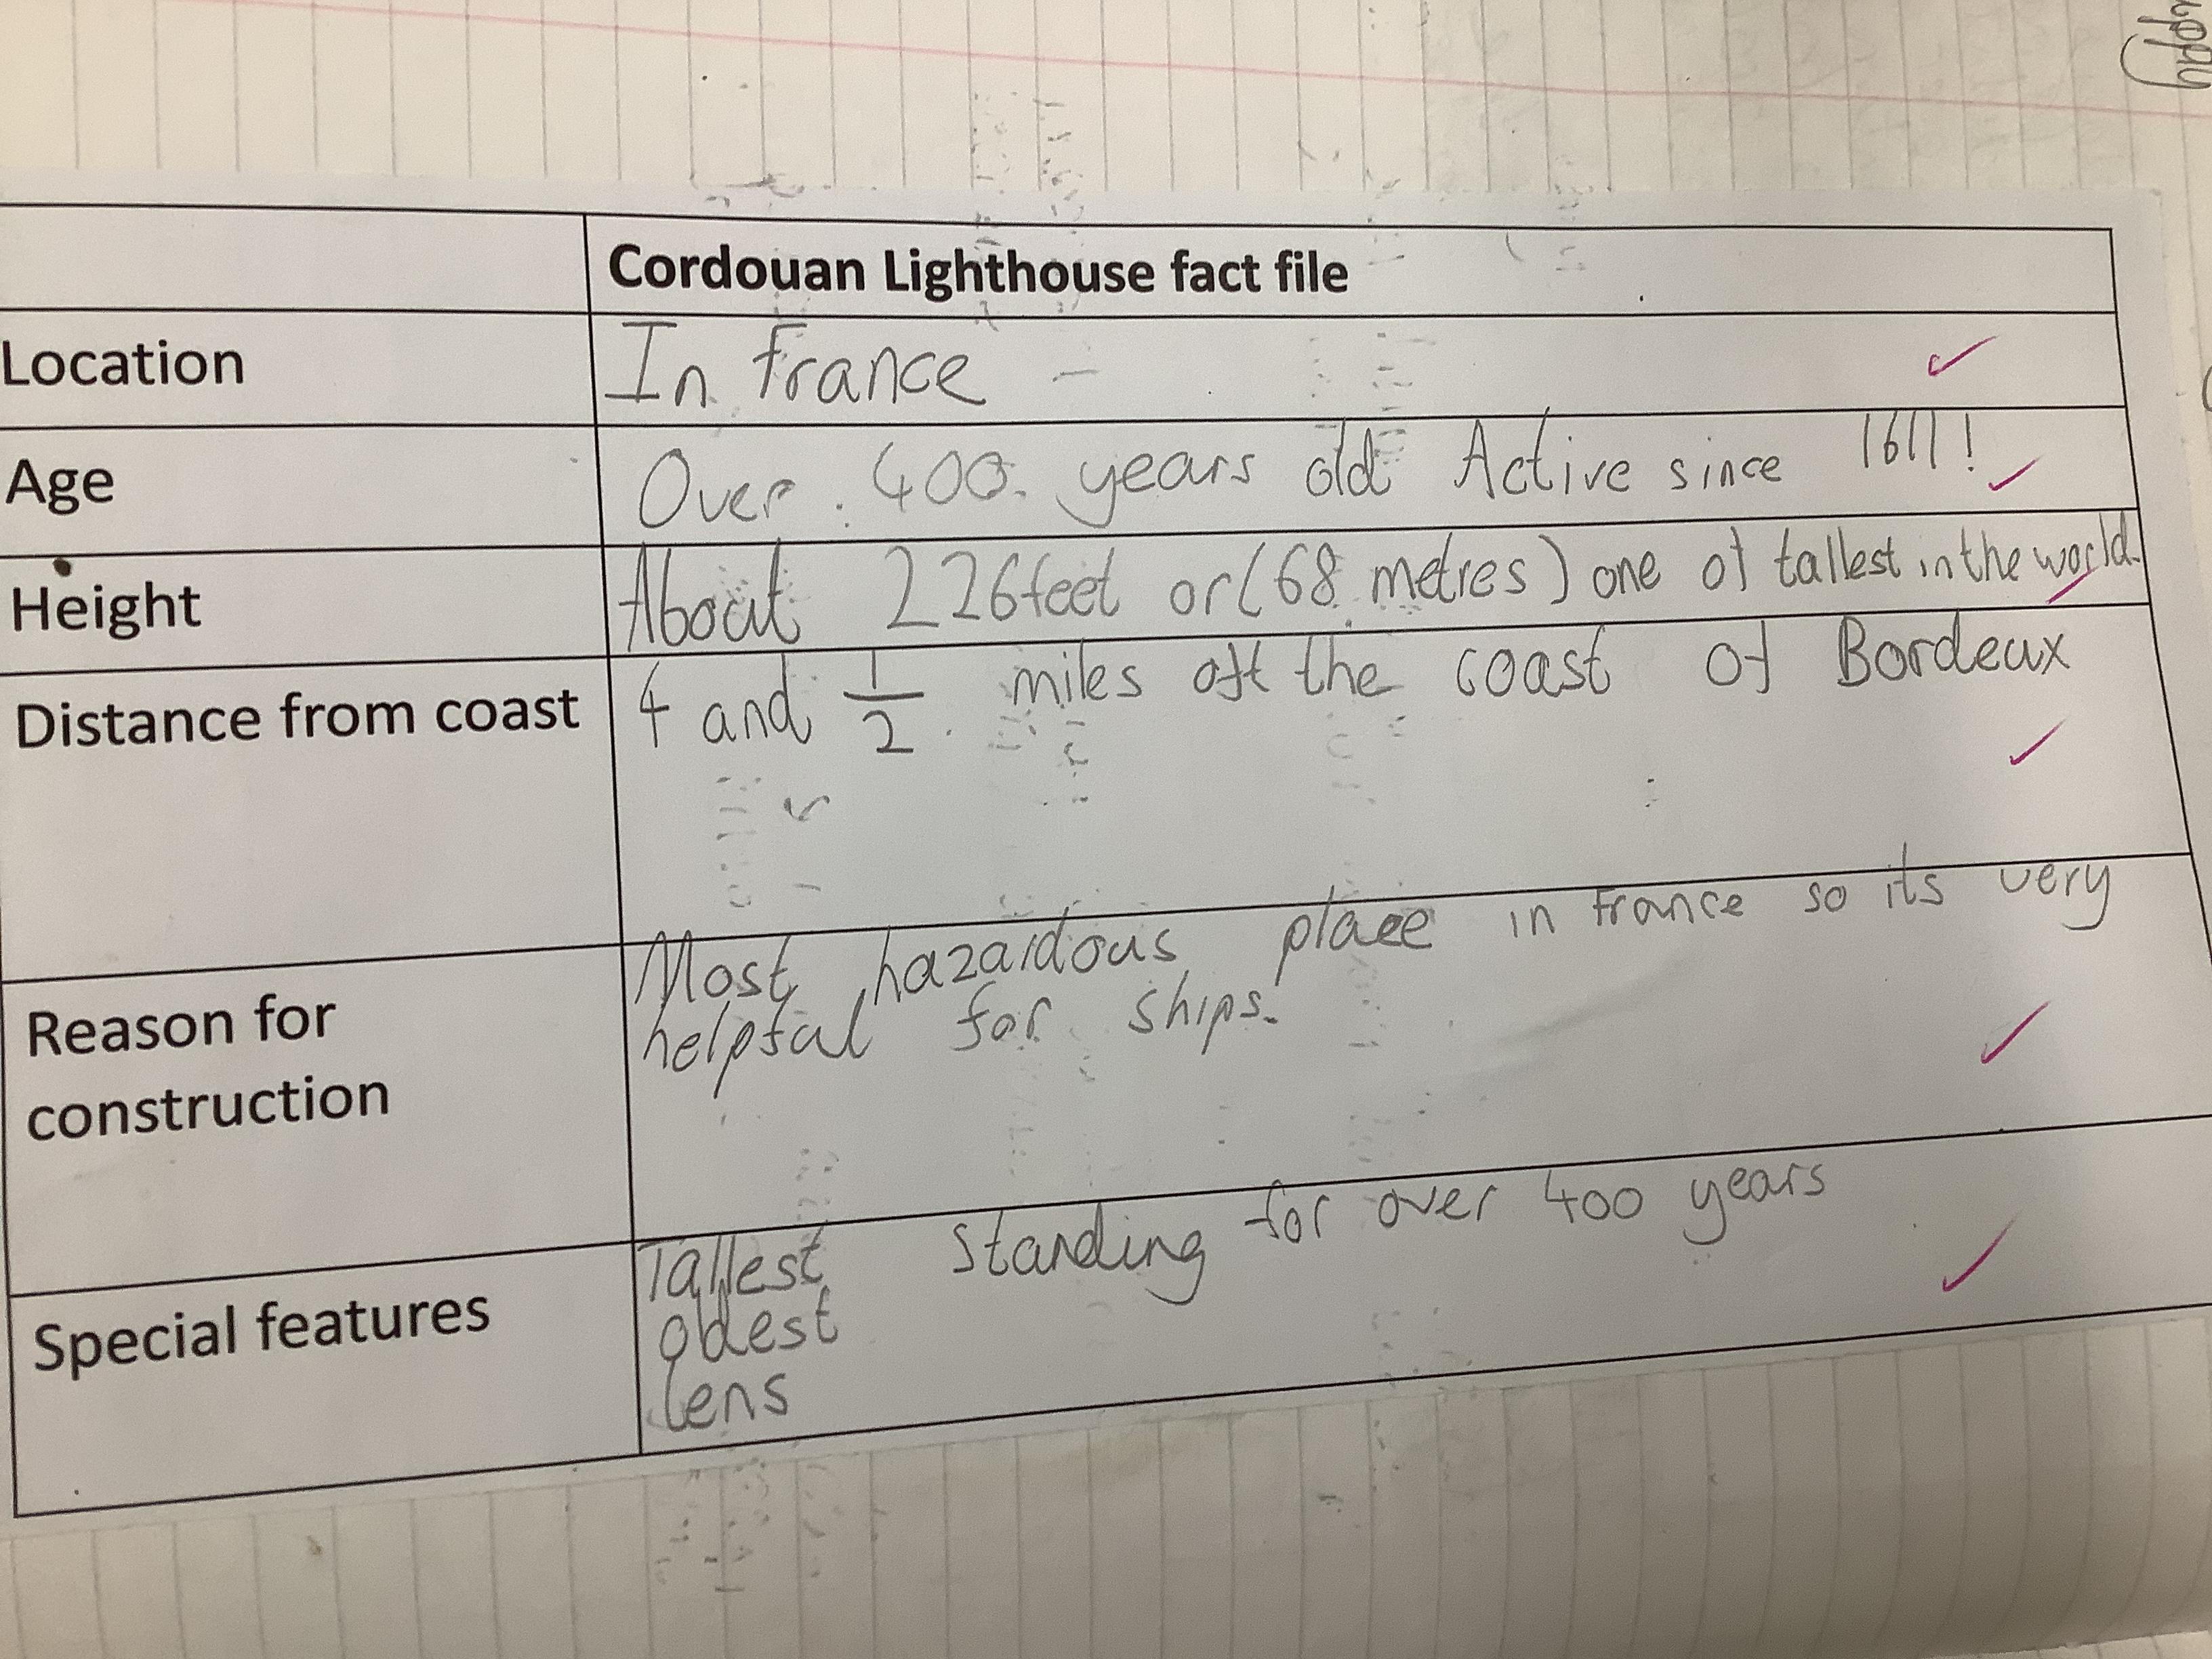 Cordouan Lighthouse fact file
Location
In france
Age
Over 400 years old Active since 1611!
Height
About 226feet or (68 metres) one of tallest in the world.
Distance from coast
4 and 1/2 miles off the coast of Bordeux
Reason for
construction
Most hazardous place in france so its very
helpful for ships.
Special features
Tallest standing for over 400 years
oldest
lens